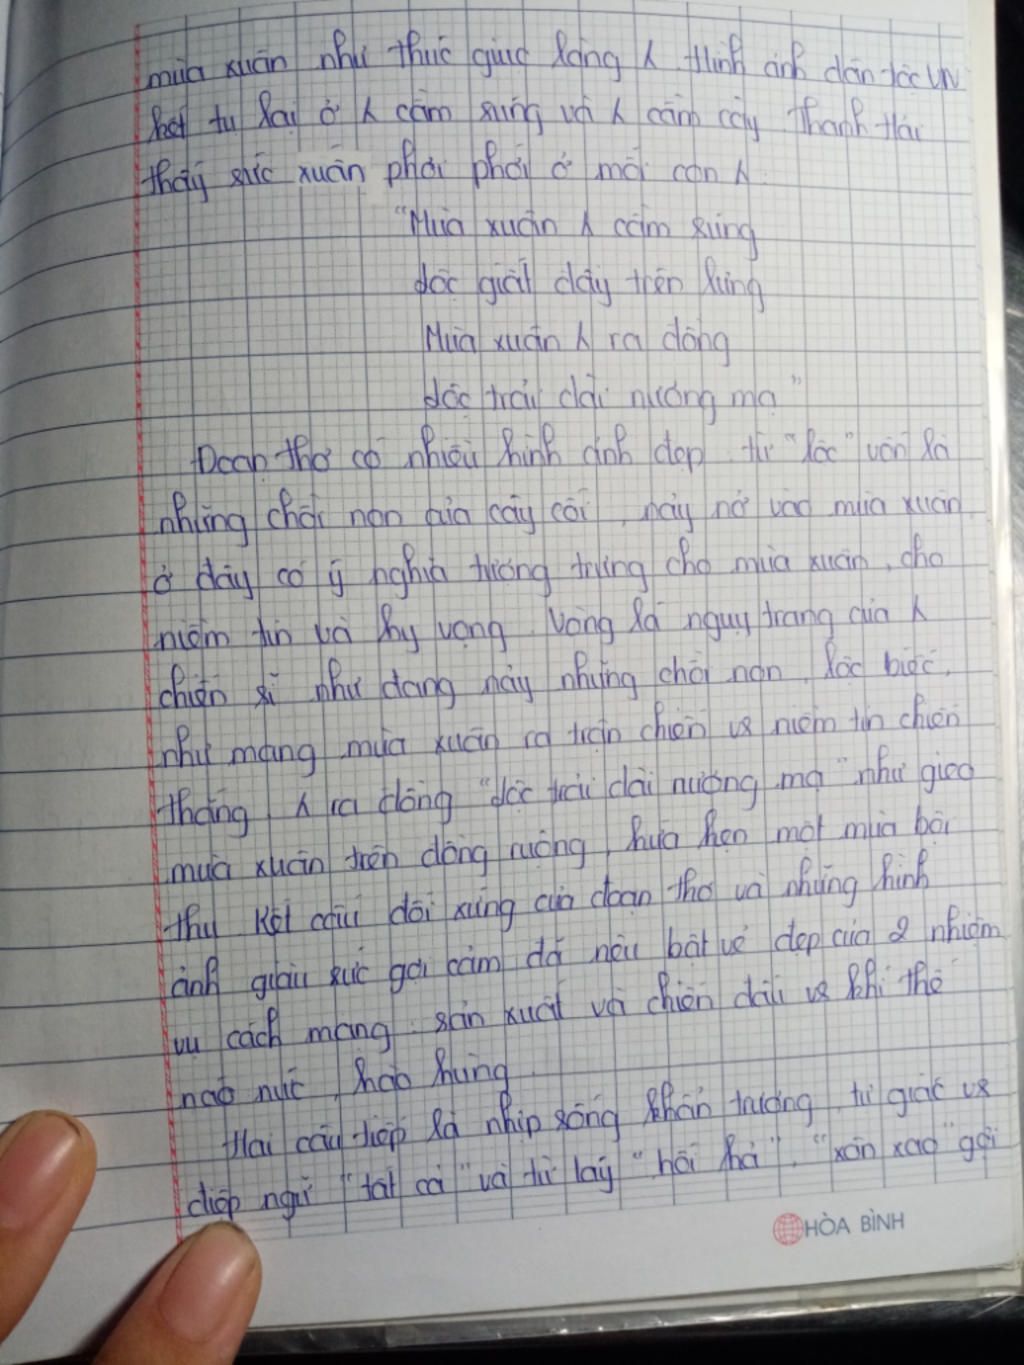 mùa xuân như thúc giục lòng λ Hình ảnh dân tộc VN
kết tụ lại ở λ cầm súng và λ cầm cày Thanh Hải
thấy sức xuân phơi phới ở mỗi con λ.
"Mùa xuân λ cầm súng
Lộc giắt đầy trên lưng
Mùa xuân λ ra đồng
Lộc trải dài nương mạ"
Đoạn thơ có nhiều hình ảnh đẹp, từ "lộc" vốn là
những chồi non của cây cối, nảy nở vào mùa xuân
ở đây có ý nghĩa tượng trưng cho mùa xuân, cho
niềm tin và hy vọng. Vòng lá ngụy trang của λ
chiến sĩ như đang nảy những chồi non, lộc biếc,
như mang mùa xuân ra trận chiến vs niềm tin chiến
thắng, λ ra đồng "Lộc trải dài nương mạ" như gieo
mùa xuân trên đồng ruộng, hứa hẹn một mùa bội
thu Kết cấu đối xứng của đoạn thơ và những hình
ảnh giàu sức gợi cảm đã nêu bật vẻ đẹp của 2 nhiệm
vụ cách mạng: sản xuất và chiến đấu vs khí thế
náo nức, hào hùng
Hai câu tiếp là nhịp sống khẩn trương, tự giác vs
điệp ngữ "tất cả" và từ láy "hối hả", "xôn xao" gợi
HÒA BÌNH